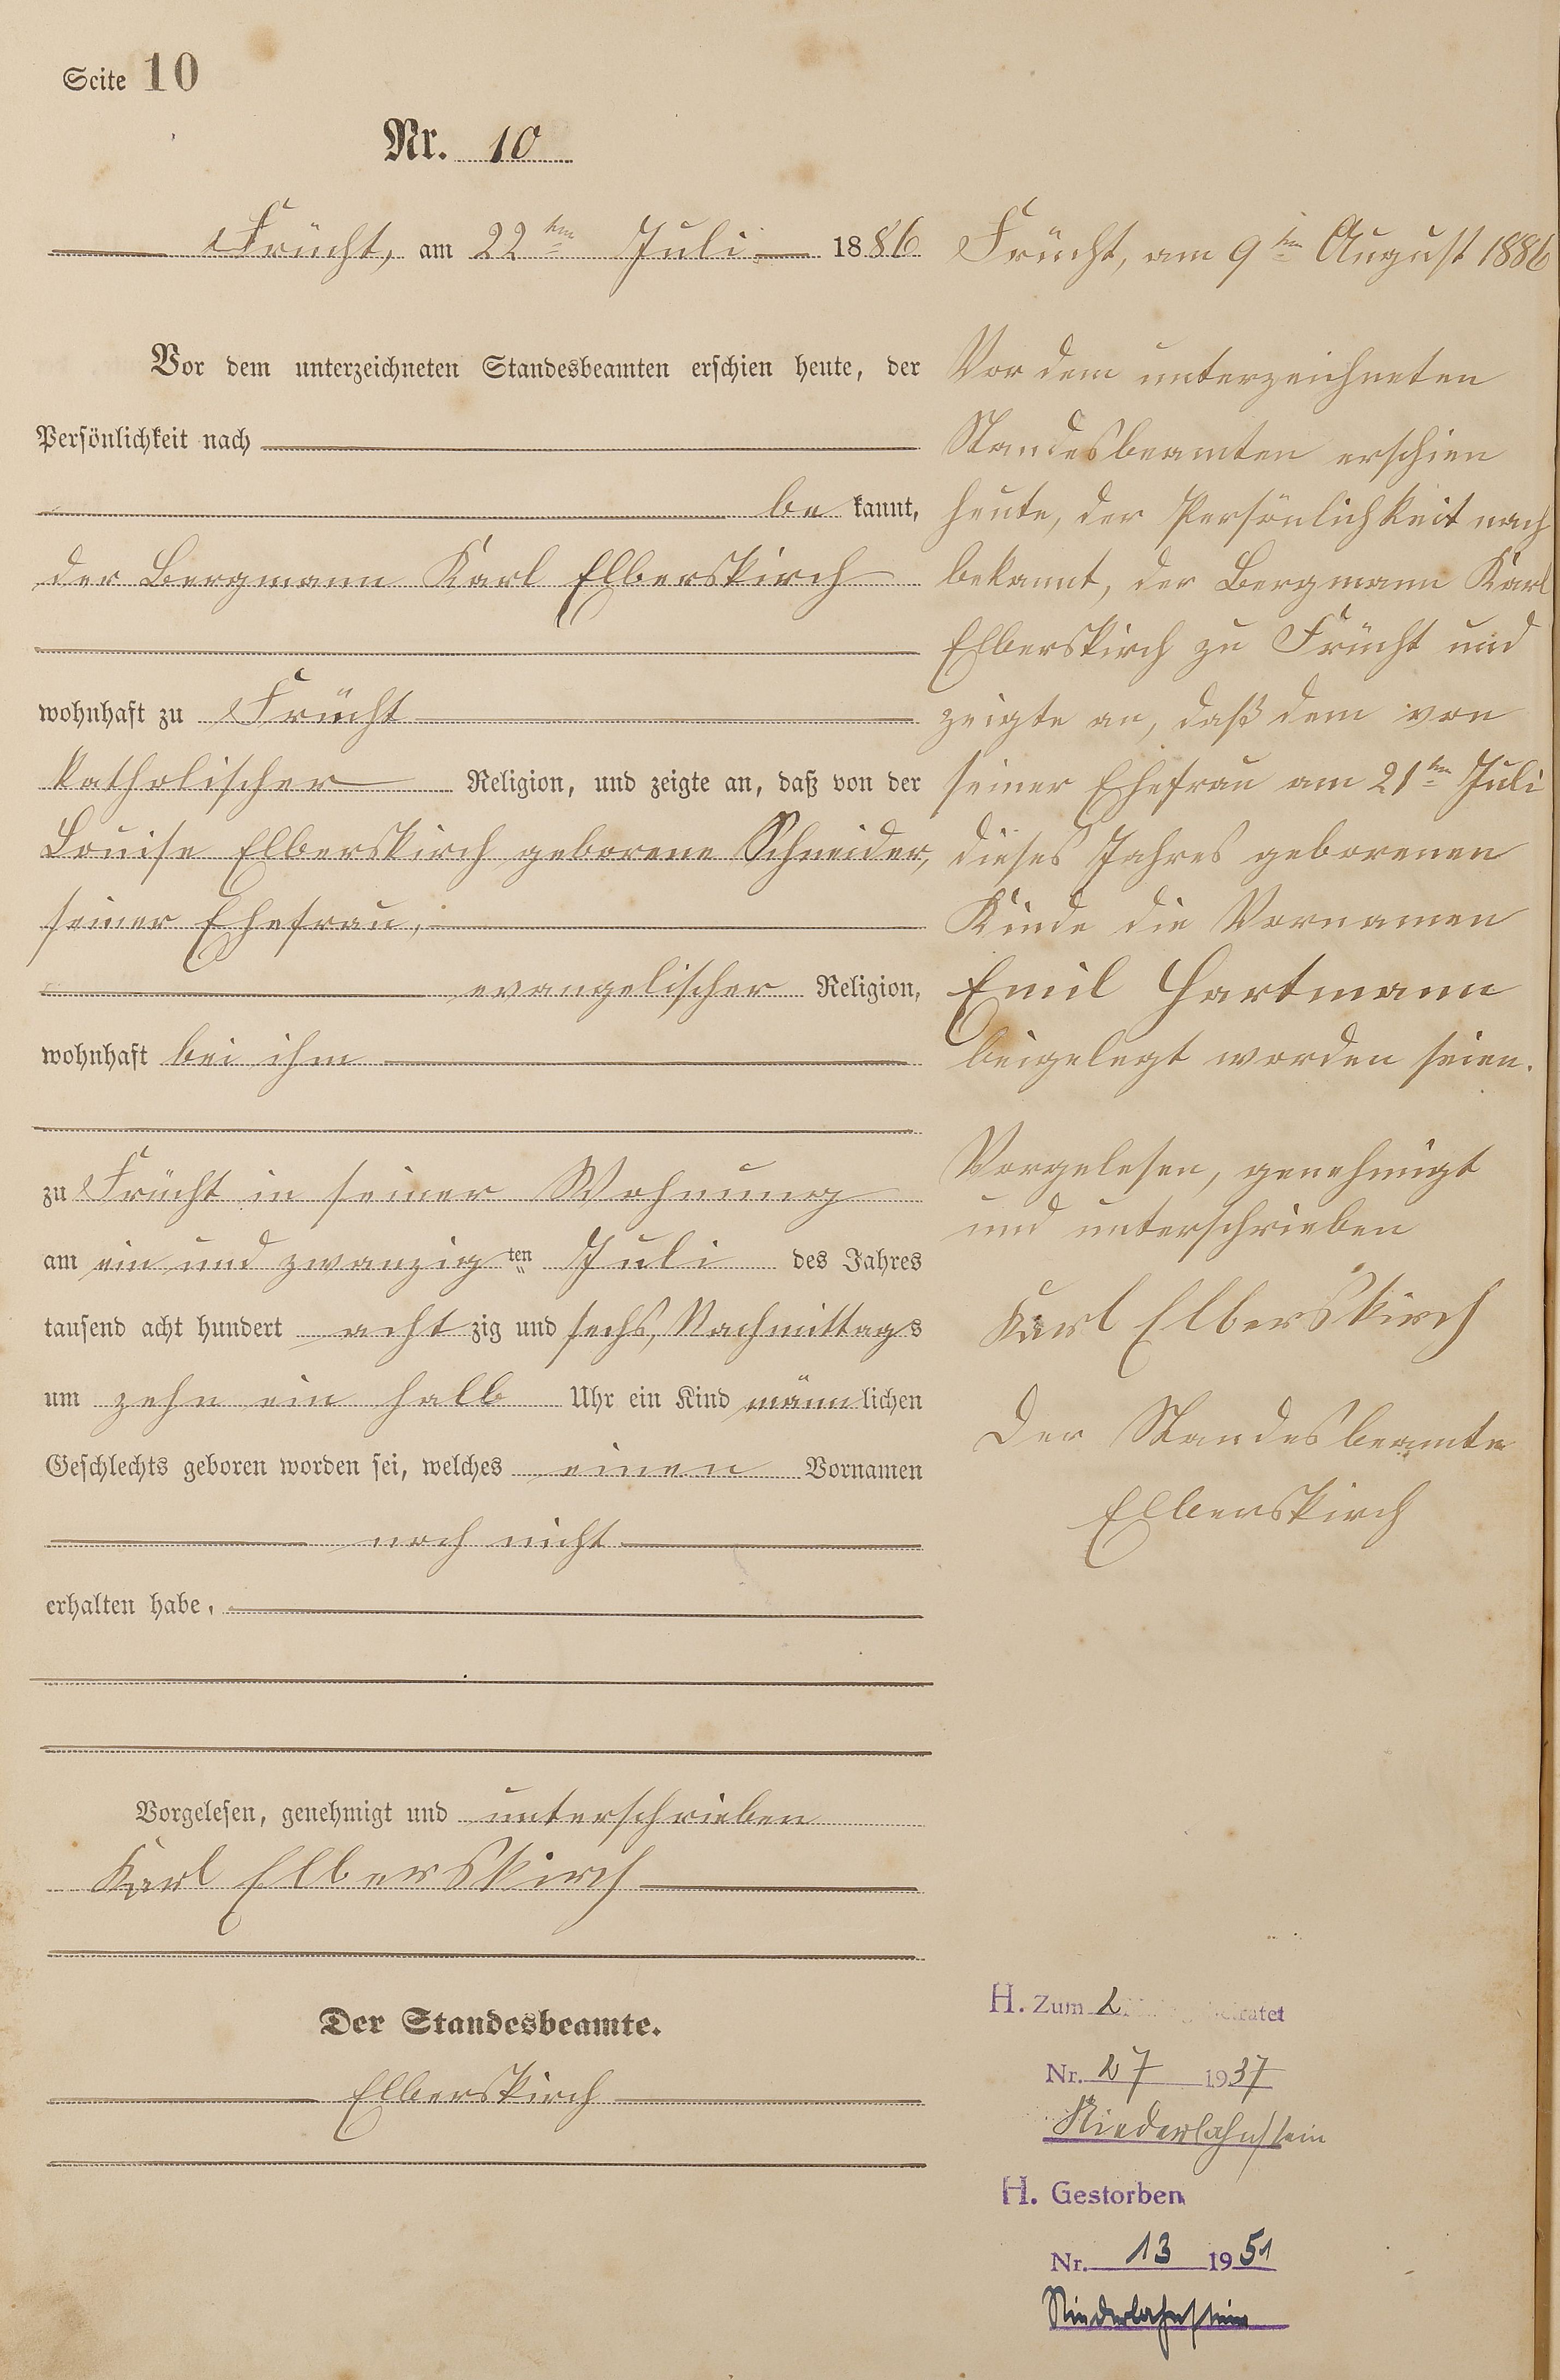 Seite 10
Nr. 10
Frücht, am 22ten Juli 1886
Vor dem unterzeichneten Standesbeamten erschien heute, der
Persönlichkeit nach
be kannt,
der Bergmann Karl Elberskirch
wohnhaft zu Frücht
katholischer Religion, und zeigte an, daß von der
Louise Elberskirch geborene Schneider,
seiner Ehefrau,
evangelischer Religion,
wohnhaft bei ihm
zu Frücht in seiner Wohnung
am ein und zwanzig ten Juli des Jahres
tausend acht hundert acht zig und sechs, Nachmittags
um zehn ein halb Uhr ein Kind männ lichen
Geschlechts geboren worden sei, welches einen Vornamen
noch nicht
erhalten habe.
Vorgelesen, genehmigt und unterschrieben
Karl Elberskirch
Der Standesbeamte.
Elberskirch
Frücht, am 9ten August 1886
Vor dem unterzeichneten
Standesbeamten erschien
heute, der Persönlichkeit nach
bekannt, der Bergmann Karl
Elberskirch zu Frücht und
zeigte an, daß dem von
seiner Ehefrau am 21ten Juli
dieses Jahres geborenen
Kinde die Vornamen
Emil Hartmann
beigelegt worden seien.
Vorgelesen, genehmigt
und unterschrieben
Karl Elberskirch
Der Standesbeamte
Elberskirch
H. Zum 2.
Nr. 27 1937
Niederlahnstein
H. Gestorben
Nr. 13 1951
Niederlahnstein